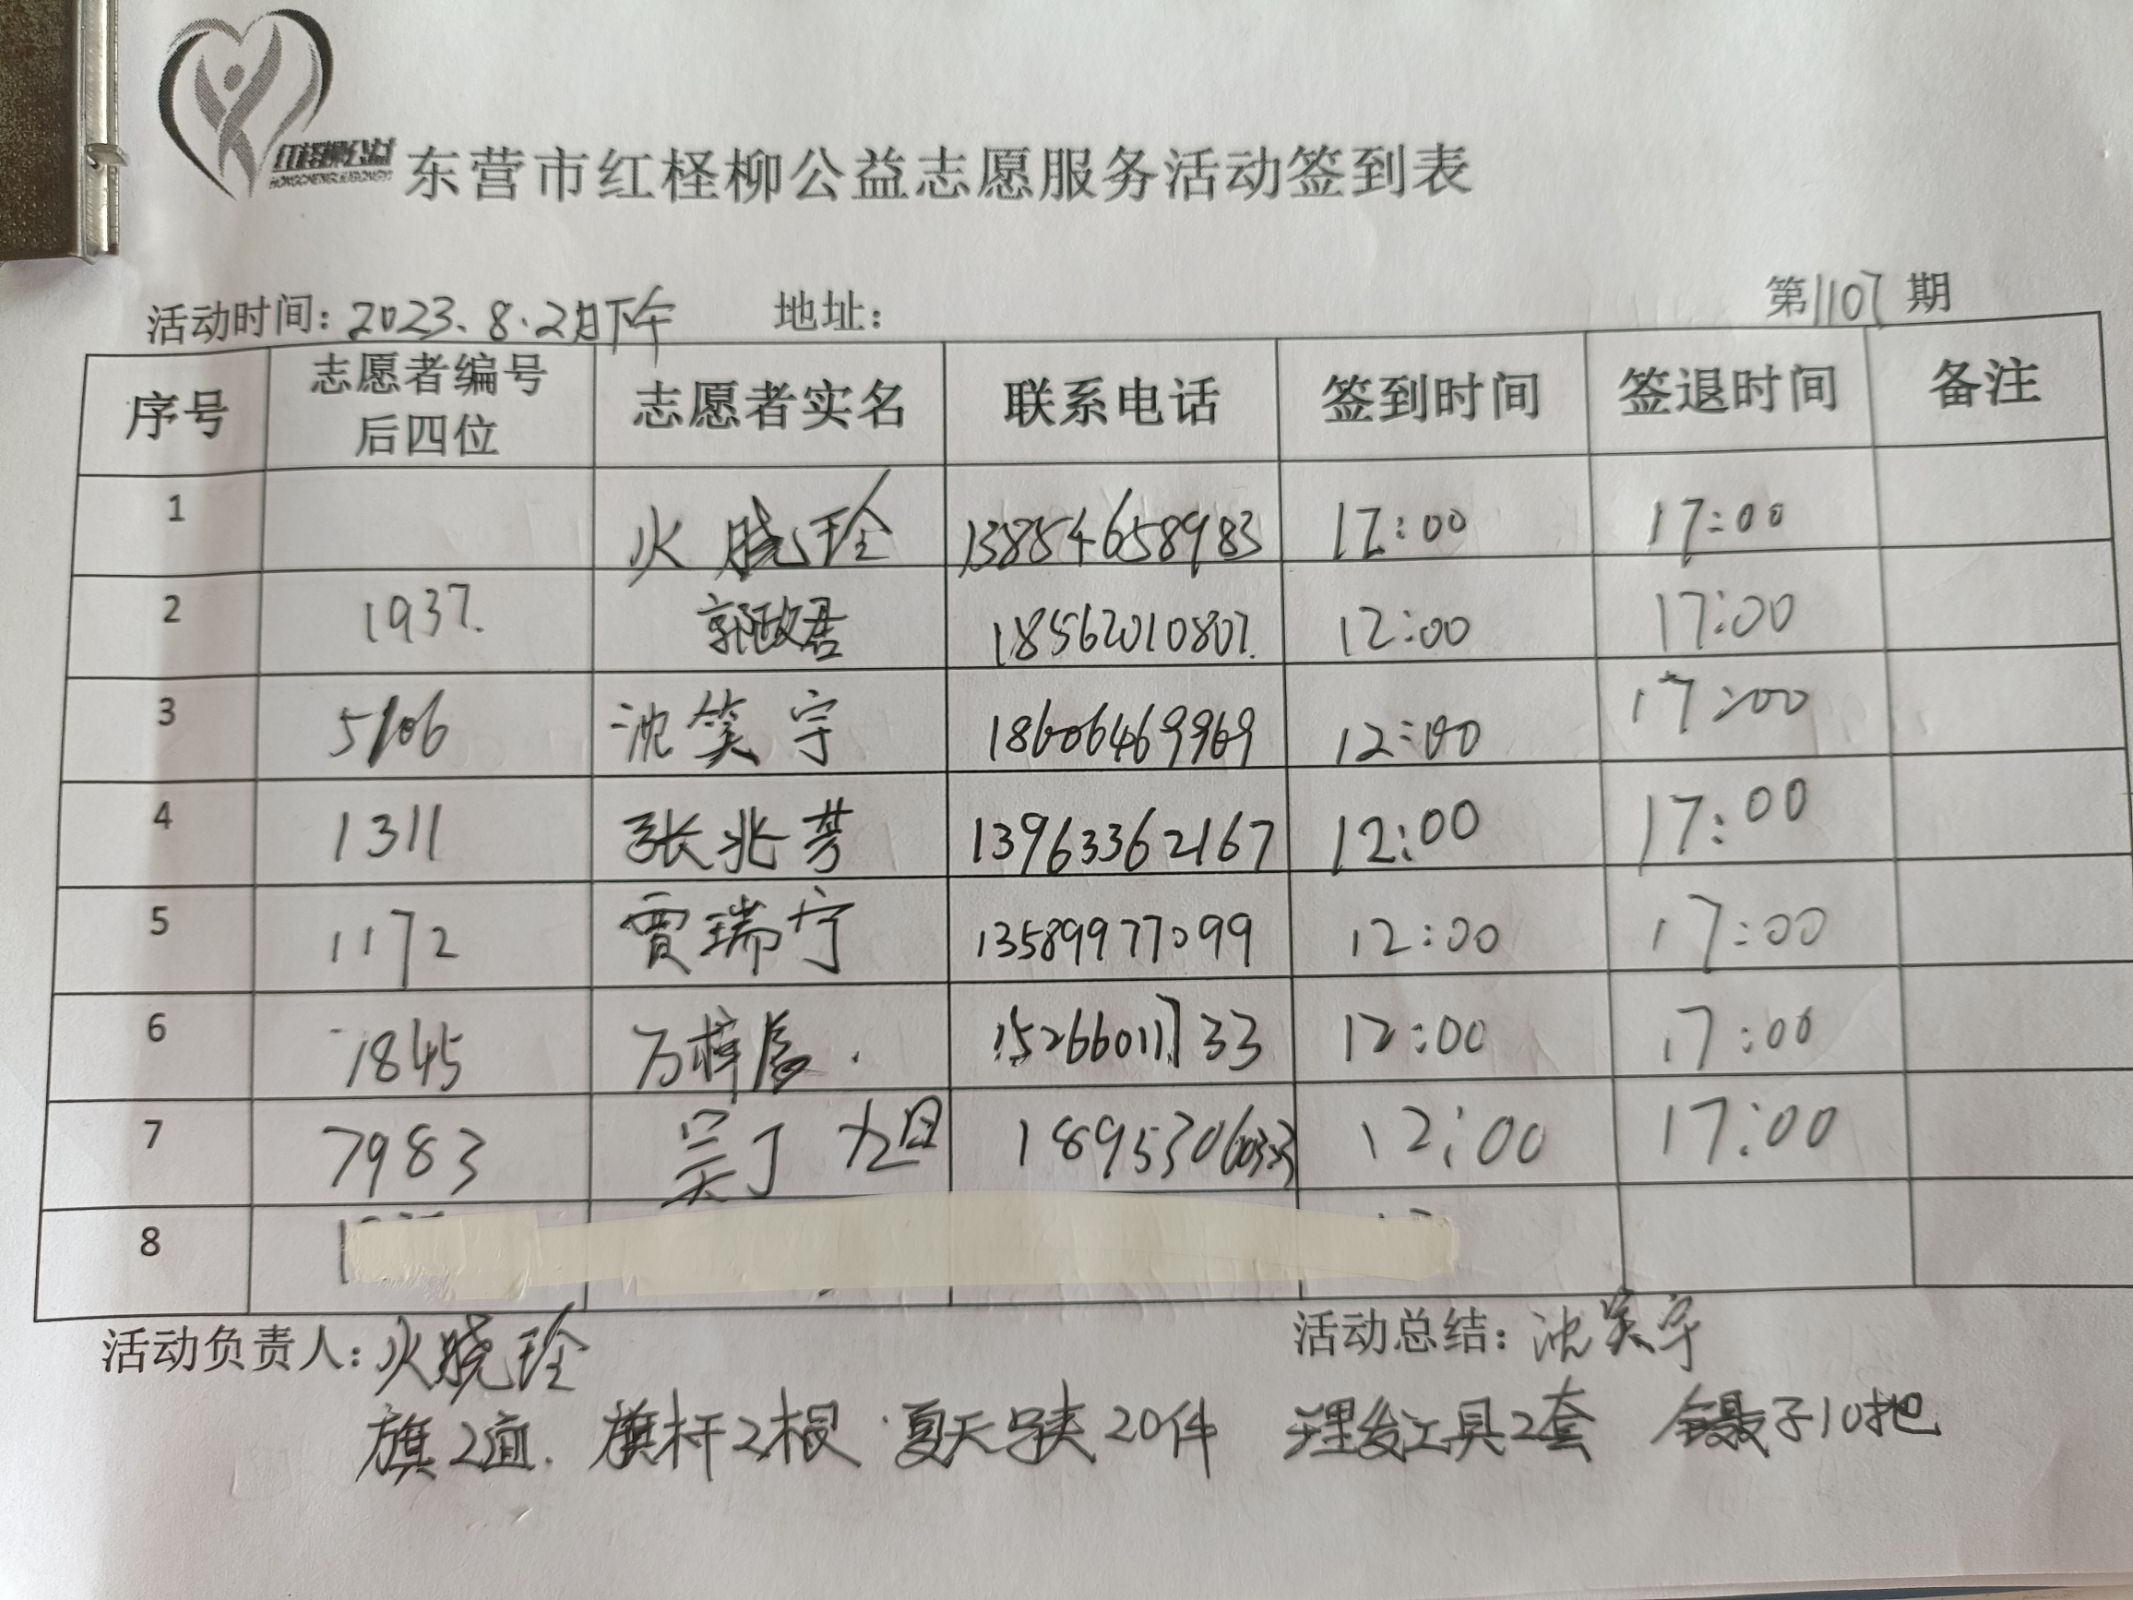 红柽柳公益
东营市红柽柳公益志愿服务活动签到表
活动时间: 2023.8.2日下午 地址: 第1107期
序号 志愿者编号后四位 志愿者实名 联系电话 签到时间 签退时间 备注
1 火晓玲 13854658983 12:00 17:00
2 1937. 郭政君 18562010807. 12:00 17:00
3 5106 沈笑宇 18606469969 12:00 17:00
4 1311 张兆芳 13963362167 12:00 17:00
5 1172 贾瑞宁 13589977099 12:00 17:00
6 1845 万梓辰 15266011733 12:00 17:00
7 7983 吴丁旭 12:00 17:00
8
活动负责人: 火晓玲 活动总结: 沈笑宇
旗2面. 旗杆2根 夏天马夹20件 理发工具2套 镊子10把